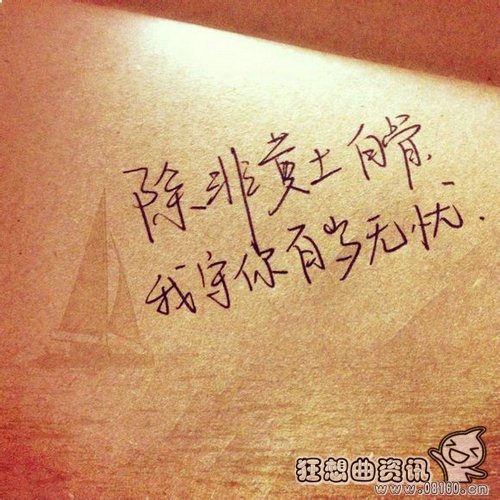 除非黄土白骨.
我守你百岁无忧.
狂想曲资讯
www.08160.cn